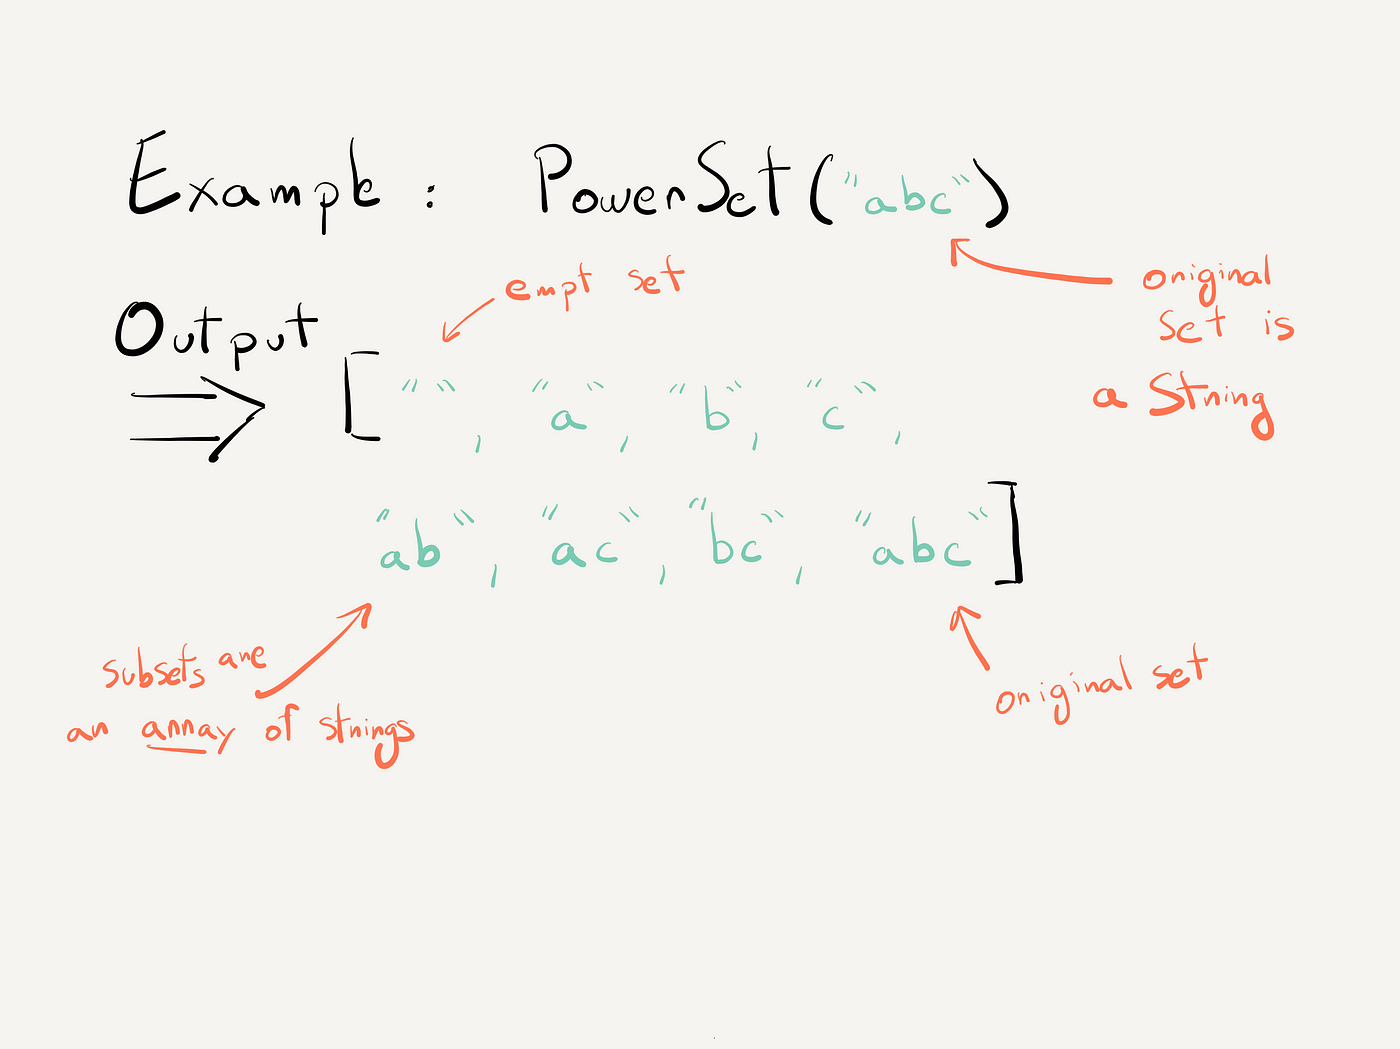 Example : PowerSet("abc")
empt set
original
set is
a String
Output
["", "a", "b", "c",
"ab", "ac", "bc", "abc"]
subsets are
an array of strings
original set